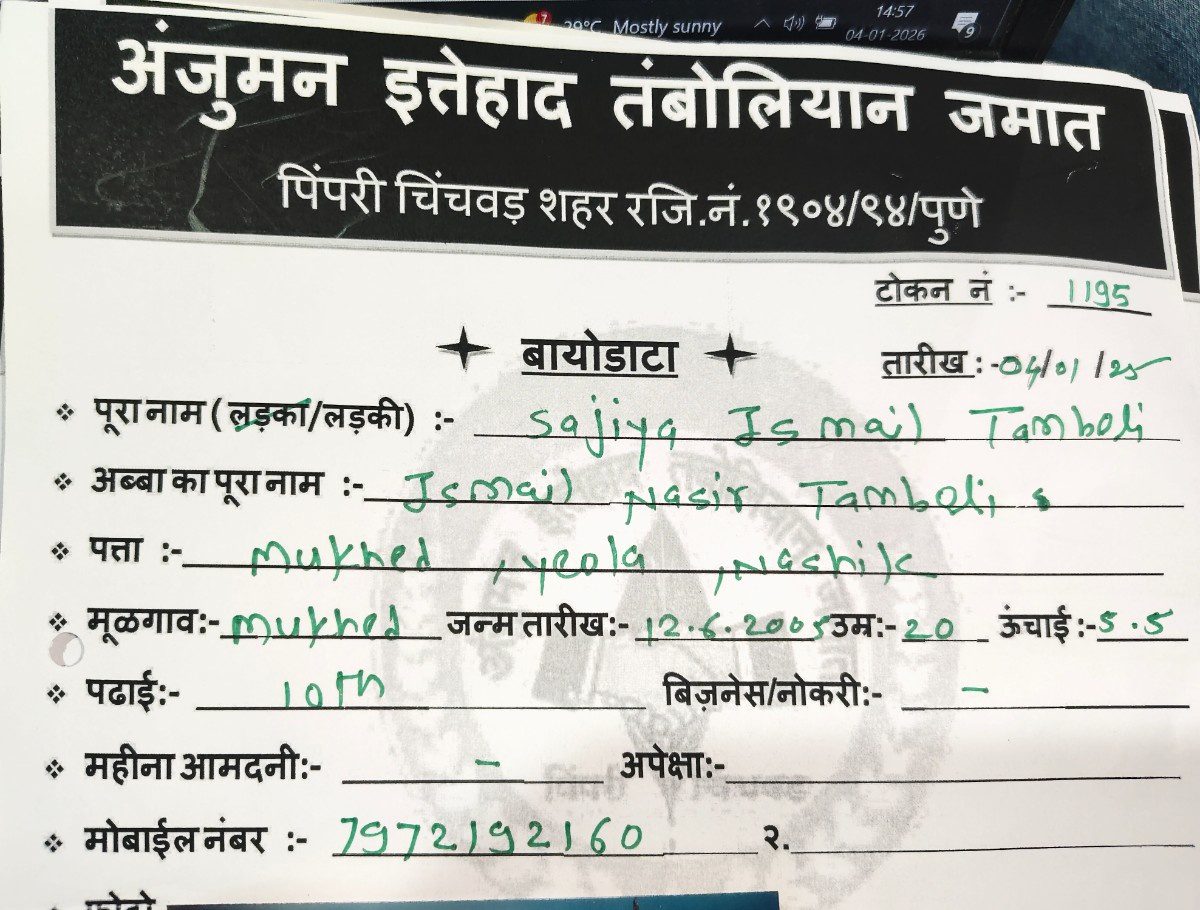 29°C Mostly sunny
14:57
04-01-2026
7
9
अंजुमन इत्तेहाद तंबोलियान जमात
पिंपरी चिंचवड़ शहर रजि.नं.१९०४/९४/पुणे
टोकन नं :- 1195
बायोडाटा
तारीख :- 04/01/25
❖ पूरा नाम ( लड़का/लड़की) :- Sajiya Ismail Tamboli
❖ अब्बा का पूरा नाम :- Ismail Nasir Tamboli
❖ पत्ता :- Mukhed , Yeola , Nashik
❖ मूळगाव:- Mukhed जन्म तारीख:- 12.6.2005 उम्र:- 20 ऊंचाई :- 5.5
❖ पढाई:- 10th बिज़नेस/नोकरी:- -
❖ महीना आमदनी:- - अपेक्षा:-
❖ मोबाईल नंबर :- 7972192160 २.
❖ फोटो
पिंपरी चिंचवड